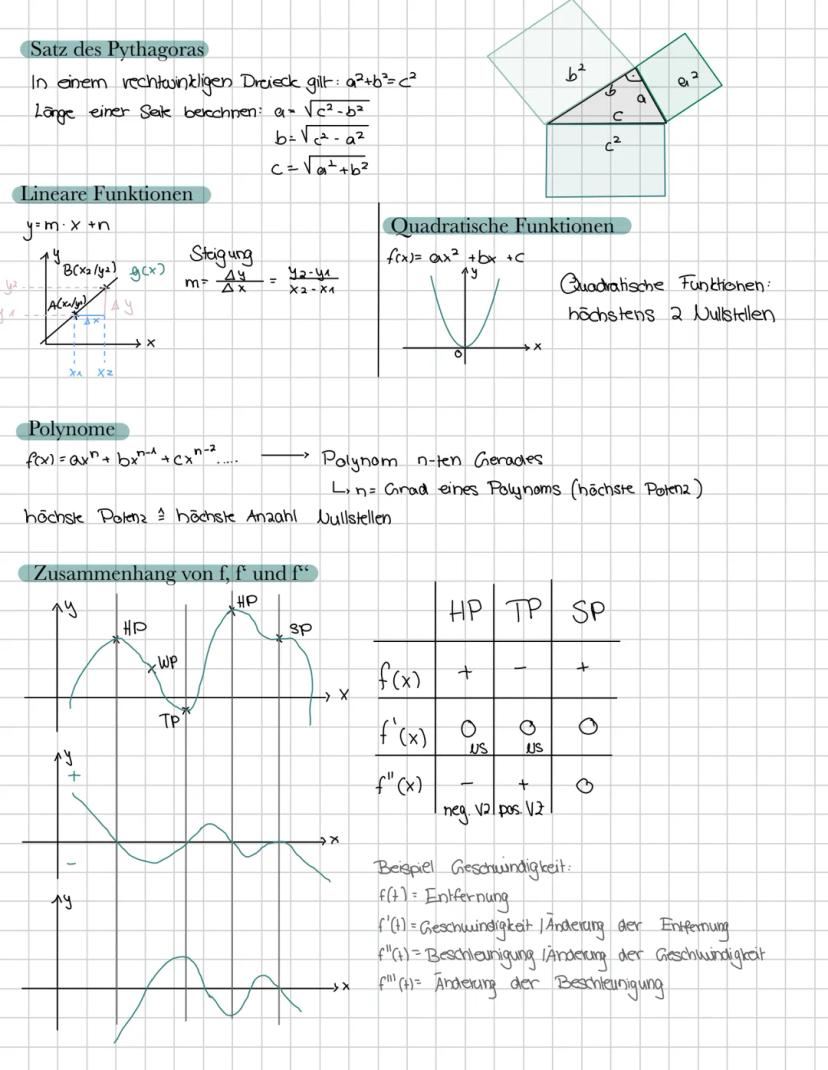 Satz des Pythagoras
In einem rechtwinkligen Dreieck gilt: a²+b²=c²
Länge einer Seite berechnen: a = √c²-b²
b = √c²-a²
c = √a²+b²
b²
a²
b
a
c
c²
Lineare Funktionen
y=m·x+n
y
B(x2/y2)
g(x)
y2
A(x1/y1)
Δy
y1
Δx
x
x1 x2
Steigung
m= Δy/Δx = y2-y1/x2-x1
Quadratische Funktionen
f(x)= ax² +bx +c
y
0
x
Quadratische Funktionen:
höchstens 2 Nullstellen
Polynome
f(x) = axⁿ + bxⁿ⁻¹ + cxⁿ⁻²..... → Polynom n-ten Gerades
↳ n= Grad eines Polynoms (höchste Potenz)
höchste Potenz ≙ höchste Anzahl Nullstellen
Zusammenhang von f, f‘ und f“
y
HP
WP
TP
HP
SP
x
y
+
-
x
y
x
HP TP SP
f(x) + - +
f'(x) 0 0 0
NS NS
f''(x) - + 0
neg. VZ pos. VZ
Beispiel Geschwindigkeit:
f(t) = Entfernung
f'(t) = Geschwindigkeit / Änderung der Entfernung
f''(t) = Beschleunigung / Änderung der Geschwindigkeit
f'''(t) = Änderung der Beschleunigung